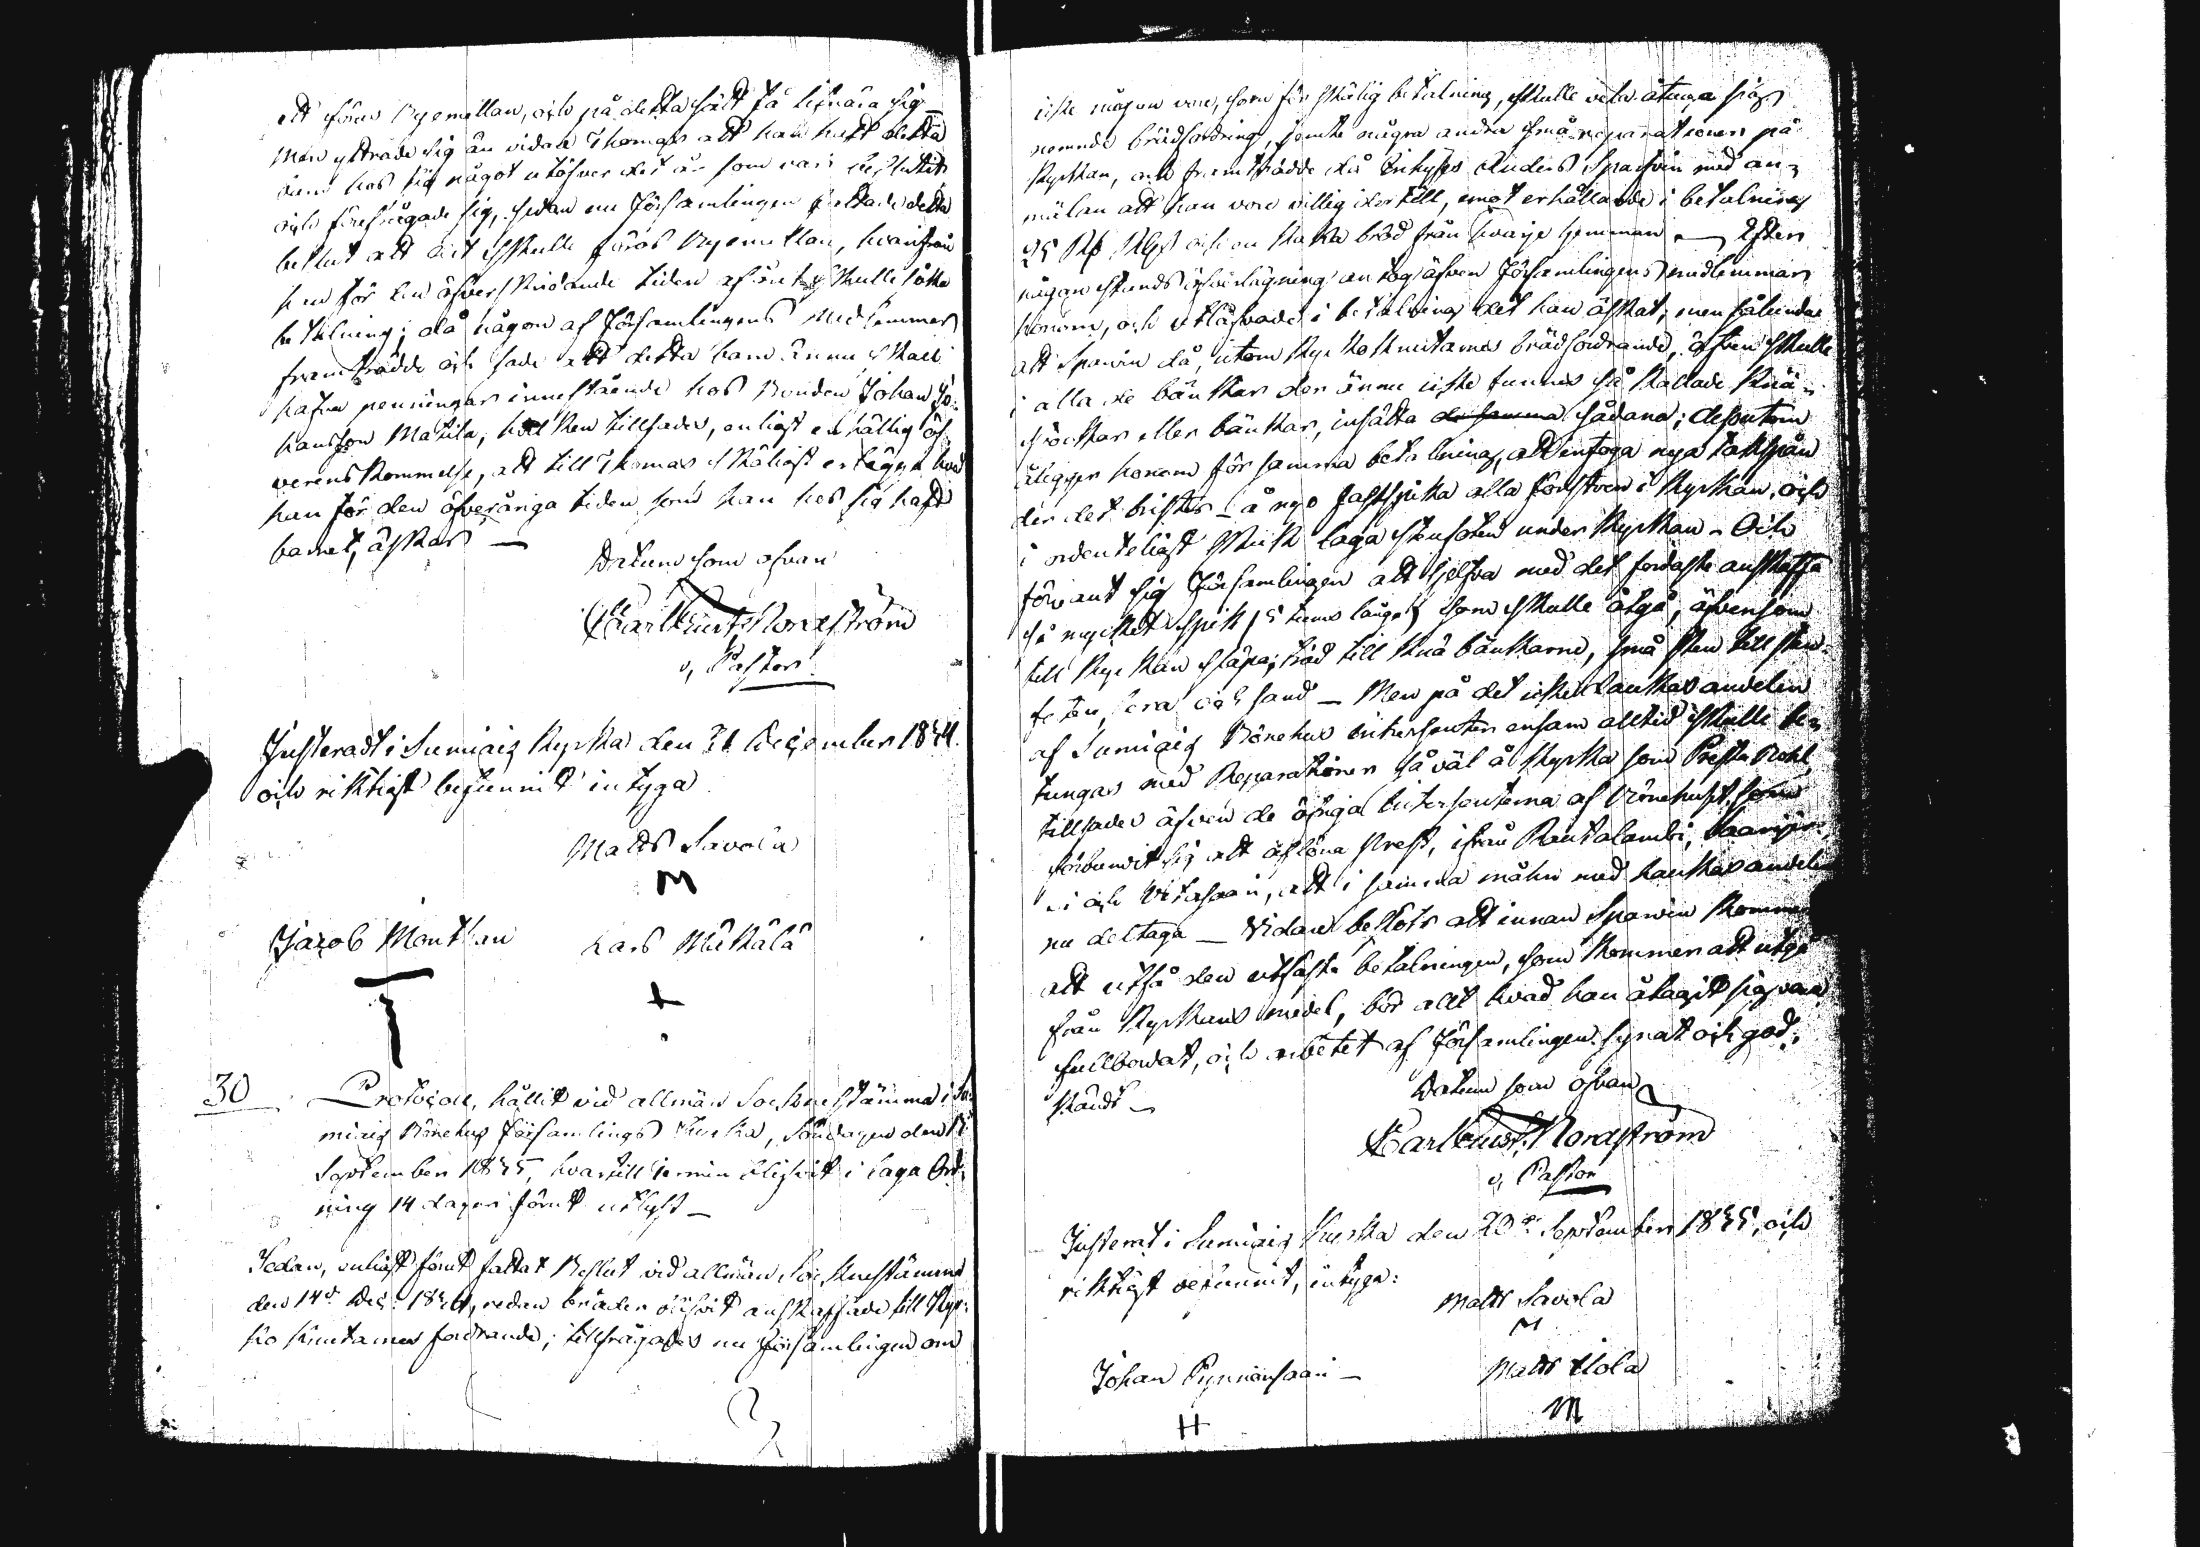 att föras Byemellan, och på detta sätt få lifnära sig –
Men yttrade sig än vidare Thomas att han haft detta
barn hos sig något utöfver det år som var beslutit
och förefrågade sig, sedan nu Församlingen fattade detta
beslut att det skulle föras Byemellan, hvarifrån
han för den öfverskridande tiden skulle söka
betalning; då någon af Församlingens Medlemmar
framträdde och sade att detta barn ännu skall
hafva penningar innestående hos Bonden Johan Jo-
hansson Matila, hvilken tillsades, enligt enhällig öf-
verenskommelse, att till Thomas skäligt erlägga hvad
han för den öfveråriga tiden som han hos sig haft
barnet, äskar –
Datum som ofvan
Carl Gust. Nordström
v. Pastor
Justeradt i Sumiais Kyrka den 31 December 1844.
och riktigt befunnit intyga
Matts Savola
M
Jacob Montkan Lars Mäkälä
T +
30 Protocoll, hållit vid allmän Sockenstämma i Su-
miais Bönehus Församlings Kyrka, Söndagen den
September 1845, hvartill termin blifvit i laga Ord-
ning 14 dagar förut utlyst –
Sedan, enligt förut fattat Beslut vid allmän Sockenstämma
den 14de Dec. 1844, redan bräder blifvit anskaffade till Kyr-
ko knutarnes fodrande; tillfrågades nu Församlingen om
icke någon vore, som för skälig betalning, skulle vela åtaga sig
nemnde brädfodring, jemte några andra små reparationer på
Kyrkan, och framträdde då Inhyses Anders Sparfvin med an-
mälan att han vore villig dertill, emot erhållande i betalning
25 Rb Slfr och en kaka bröd från hvarje hemman – Efter
någon stunds öfverlägning antog äfven Församlingens medlemmar
honom, och utlåfvade i betalning det han äskat; men
att Sparvin då, utom Kyrkoknutarnes brädfodrande, äfven skulle
i alla de bänkar der ännu icke funnes så kallade knä-
bräckor eller bänkar, insätta de samma sådana; dessutom
åligger honom för samma betalning, att infoga nya takspån
der det brister – å nyo fastspika alla fönstren i Kyrkan, och
i ordenteligt skick laga stenfoten under Kyrkan – Och
förbant sig Församlingen att sjelfva med det fordaste anskaffa
så mycket spik (5 tums långe) som skulle åtgå, äfvensom
till Kyrkan släpa; träd till knäbänkarne, små sten till sten-
foten, lera och sand – Men på det icke Hankasandelen
af Sumiais Bönehus Interssenter ensam alltid skulle be-
tungas med Reparationer så väl å Kyrka som Preste Bohl,
tillsades äfven de öfriga Interssenterna af Bönehuset, som
förbundit sig att aflöna Prest, ifrån Rautalambi, Saarijär-
vi och Witasaari, att i samma måhn med Hankasandelen
nu deltaga – Vidare beslöts att innan Sparvin kommer
att utfå den utfäste betalningen, som kommer att utgå
från Kyrkans medel, bör allt hvad han åtagit sig vara
fullbordat, och arbetet af Församlingen synat och god-
kändt –
Datum som ofvan
Carl Gust. Nordström
v. Pastor
Justerat i Sumiais Kyrka den 20de September 1845, och
riktigt befunnit, intyga:
Matts Savola
M
Johan Pynnönsaari – Matts Uola
H M